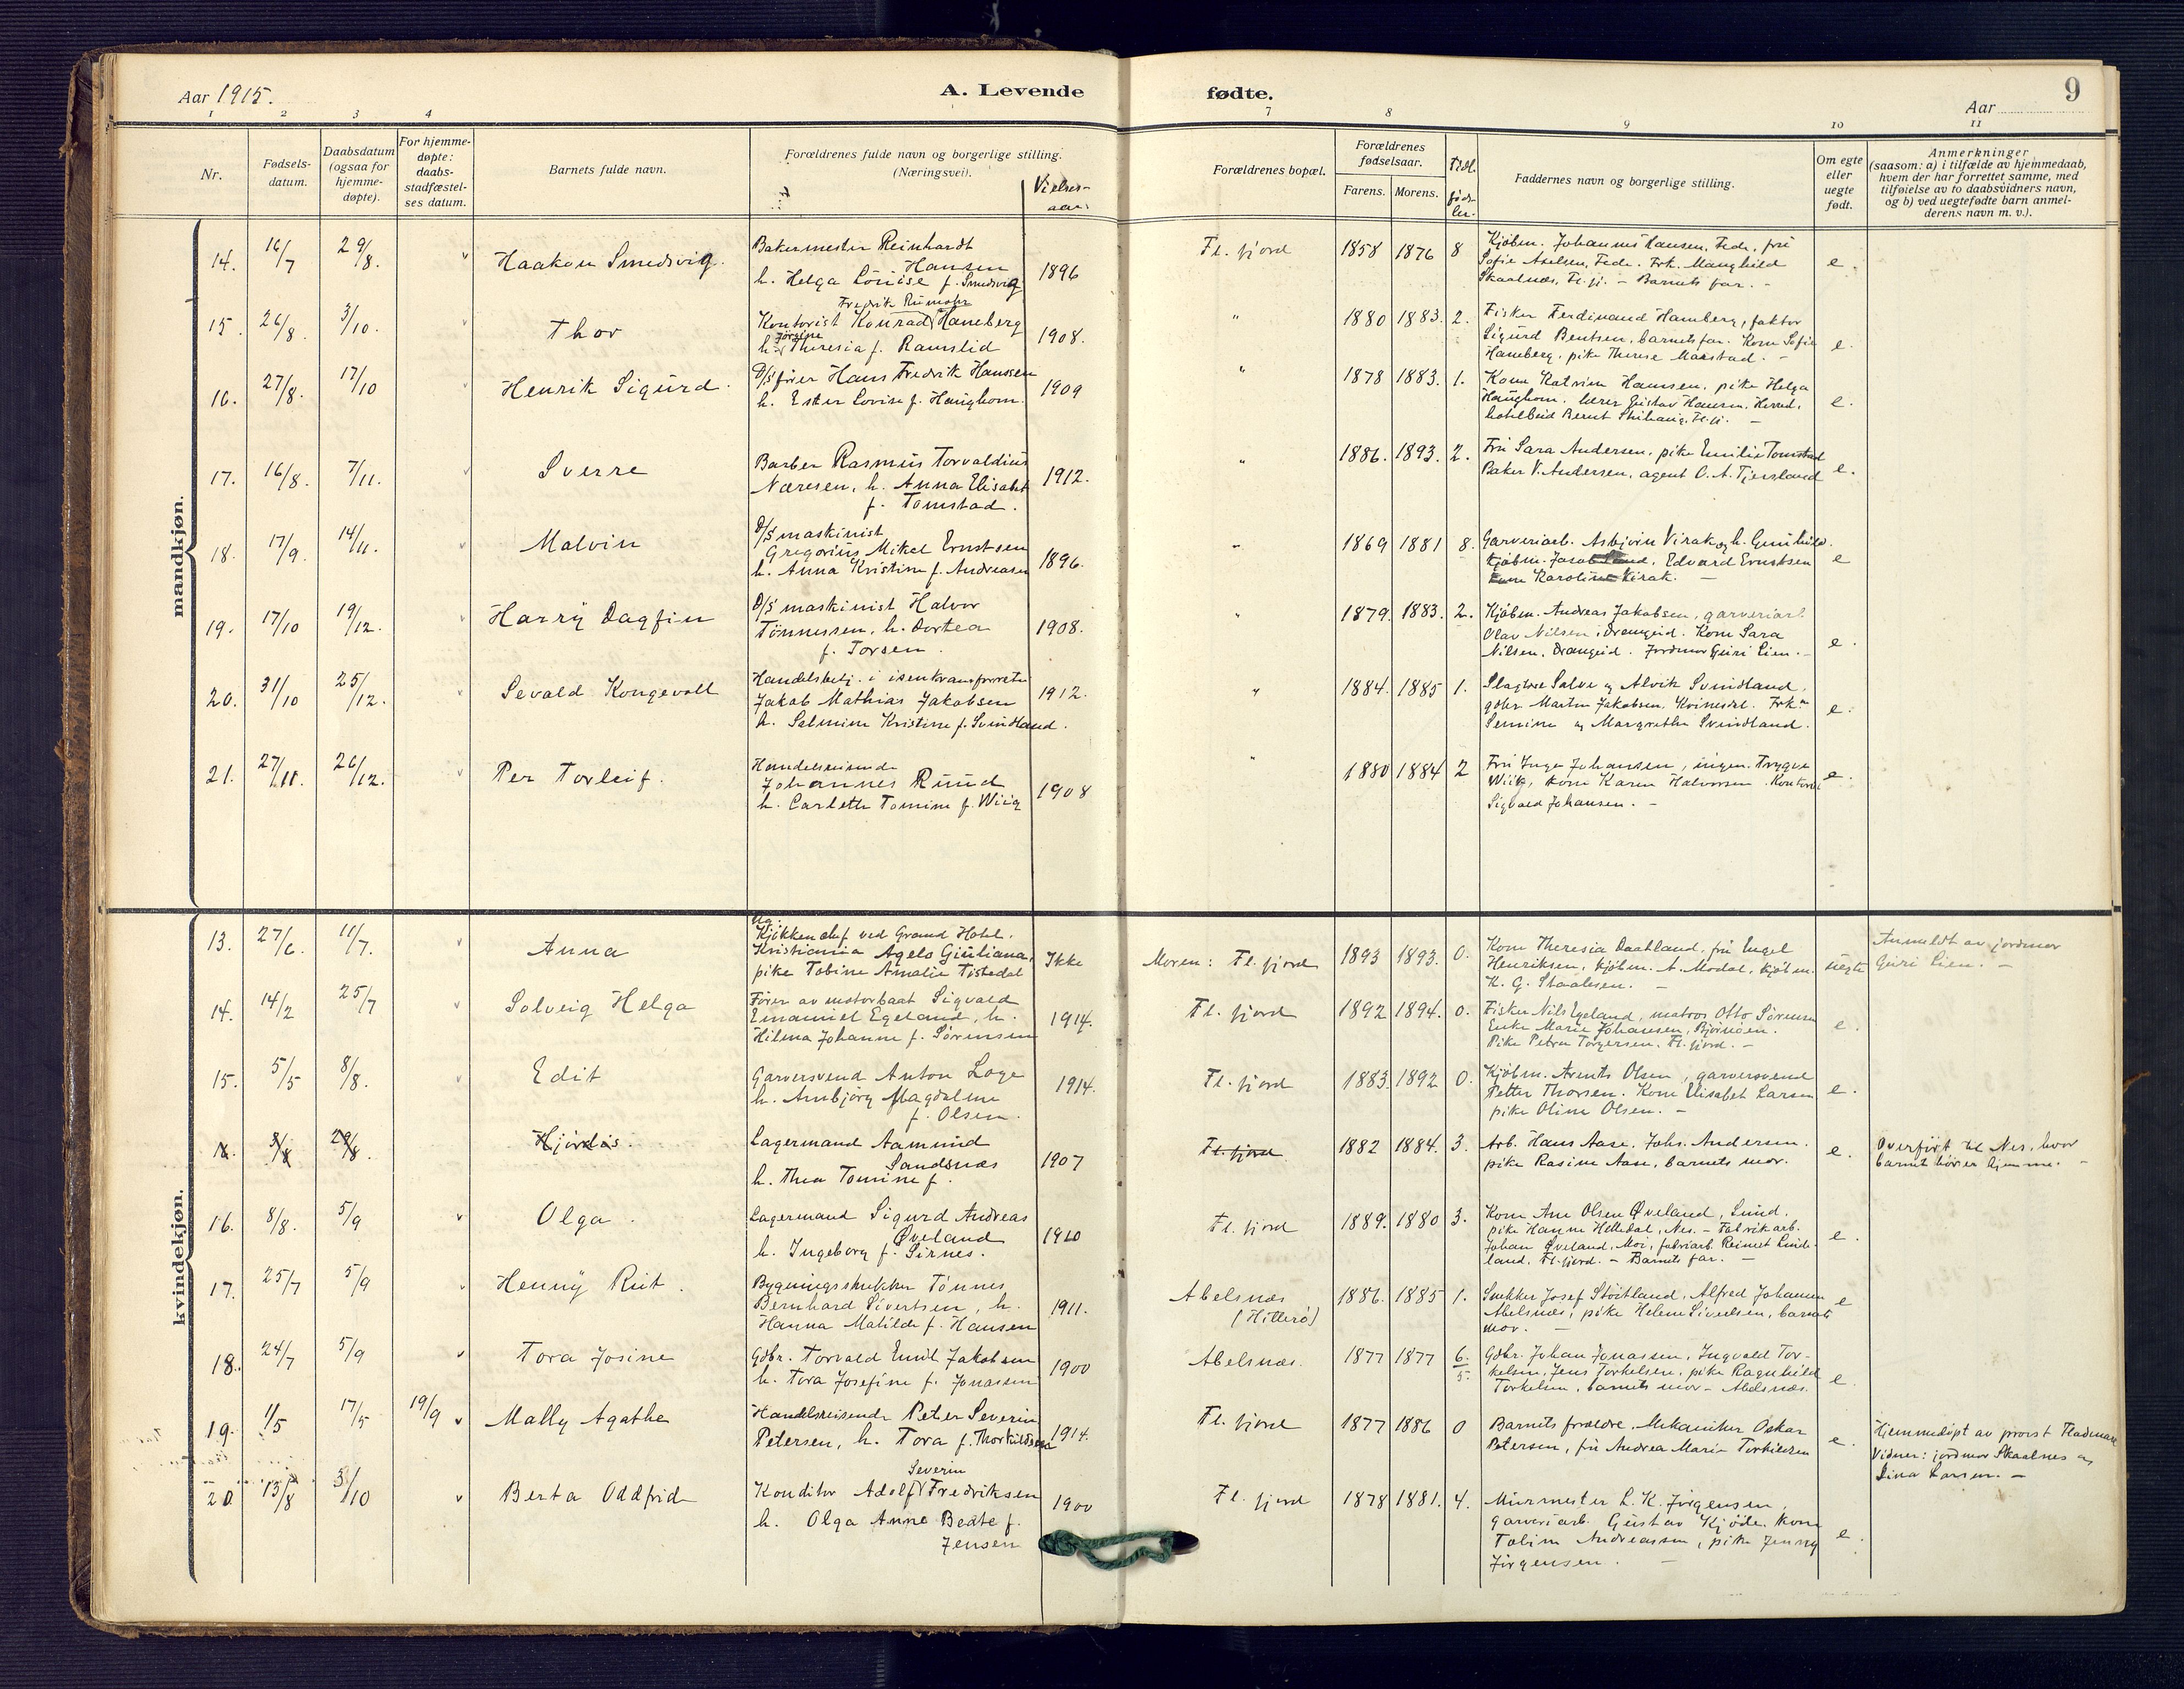 Aar 1915.
A. Levende
fødte.
9
Aar
1 2 3 4 7 8 9 10 11
Nr.
Fødsels-
datum.
Daabsdatum
(ogsaa for
hjemme-
døpte).
For hjemme-
døpte:
daabs-
stadfæstel-
ses datum.
Barnets fulde navn.
Forældrenes fulde navn og borgerlige stilling.
(Næringsvei).
Vielses-
aar.
Forældrenes bopæl.
Forældrenes
fødselsaar.
Farens. Morens.
Tidl.
føds-
ler.
Faddernes navn og borgerlige stilling.
Om egte
eller
uegte
født.
Anmerkninger
(saasom: a) i tilfælde av hjemmedaab,
hvem der har forrettet samme, med
tilføielse av to daabsvidners navn,
og b) ved uegtefødte barn anmel-
derens navn m. v.).
mandkjøn.
14. 16/7 29/8. Haakon Smedsvig.
Bakermester Reinhardt
Hansen
h. Helga Louise f. Smedsvig
1896
Fl. fjord 1858 1876 8
Kjøbm. Johannes Hansen, Fede, fru
Sofie Axelsen, Fede. Frk. Manghild
Skaalnæs, Fl. fj. - Barnets far. -
e.
15. 26/8. 3/10. Thor
Fredrik Rumohr
Kontorist Konrad Haneberg
Jörgine
h. Theresia f. Ramslid
1908.
" 1880 1883. 2.
Fisker Ferdinand Haneberg, faktor
Sigurd Bentsen, barnets far. Kone Sofie
Haneberg, pike Therese Maostad. -
e.
16. 27/8. 17/10 Henrik Sigurd.
D/S fører Hans Fredrik Hanssen
h. Ester Lovise f. Haughom.
1909
" 1878 1883. 1.
Kone Katrine Hansen, pike Helga
Haughom, lærer Gustav Hansen, Herred,
hotelbud Bernt Fl. fj. -
e.
17. 16/8. 7/11. Sverre
Barber Rasmus Torvaldius
Næresen, h. Anna Elisabet
f. Tomstad.
1912.
" 1886. 1893. 2.
Fru Sara Andersen, pike Emilie Tomstad
Baker V. Andersen, agent O. A. Tjersland
e.
18. 17/9. 14/11. Malvin
D/S maskinist
Gregorius Mikel Ernstsen
h. Anna Kristine f. Andreasen
1896.
" 1869 1881 8.
Garveriarb. Asbjørn Virak og h. Gunhild.
Kjøbm. Jacob Edvard Ernstsen
Kone Karoline Virak. -
e
19. 17/10 19/12. Harry Dagfin
D/S maskinist Halvor
Tönnessen, h. Dortea
f. Torsen.
1908.
" 1879. 1883. 2.
Kjøbm. Andreas Jakobsen, garveriarb.
Olav Nilsen, Drangeid. Kone Sara
Nilsen, Drangeid. Jordmor Guri Lien. -
e.
20. 31/10 25/12. Sevald Kongevoll
Handelsbetj. i isenkramforretn.
Jakob Mathias Jakobsen
h. Salmine Kristine f. Svindland.
1912.
" 1884. 1885 1.
Slagtere Salve og Alvik Svindland,
gdbr. Martin Jakobsen, Kvinesdal. Frk.
Semine og Margrethe Svindland.
e.
21. 27/11. 26/12. Per Torleif.
Handelsreisende
Johannes Ruud
h. Carleth Tomine f. Wiig
1908
" 1880 1884 2
Fru Inga Johansen, ingen. Trygve
Wiig, Kone Karen Halvorsen. Kontorist
Sigvald Johansen. -
e.
kvindekjøn.
13. 27/6. 11/7. Anna
Ug.
Kjøkkenchef ved Grand Hotel,
Kristiania Agelo Giuliana,
pike Tobine Amalie Tistedal
Ikke
Moren: Fl. fjord 1893 1893. 0.
Kone Theresia Daatland, fru Engel
Henriksen, kjøbm. A. Modal, kjøbm.
K. G. Staalesen. -
uegte
Anmeldt av jordmor
Guri Lien. -
14. 14/2 25/7 Solveig Helga
Fører av motorbaat Sigvald
Emanuel Egeland, h.
Hilma Johanne f. Sørensen
1914.
Fl. fjord 1892 1894. 0.
Fisker Nils Egeland, matros Otto Sørensen
Enke Marie Johansen, Bjørnöen.
Pike Petra Torgersen, Fl. fjord. -
e.
15. 5/5 8/8. Edit
Garversvend Anton Loge
h. Anbjørg Magdalene
f. Olsen.
1914.
Fl. fjord 1883. 1892 0.
Kjøbm. Arents Olsen, garversvend
Petter Thorsen. Kone Elisabet Larsen
pike Oline Olsen. -
e.
3/8 29/8. Hjördis.
Lagermand Aamund
Sandsnæs
h. Thea Tomine f.
1907
Fl. fjord. 1882 1884. 3.
Arb. Hans Aase, Johs. Andersen.
pike Rasine Aase, barnets mor.
e.
Overført til Nes, hvor
barnet hører hjemme. -
16. 8/8. 5/9 Olga.
Lagermand Sigurd Andreas
Øveland
h. Ingeborg f. Sirnes.
1910
Fl. fjord 1889. 1880 3.
Kone Ane Olsen Øveland, Lund.
pike Hanne Helledal, Nes. - Fabrikarb.
Johan Øveland, Moi, fabrikarb. Reinert Linde-
land, Fl. fjord. - Barnets far. -
e.
17. 25/7 5/9 Henny Rut.
Bygningssnekker Tönnes
Bernhard Sivertsen, h.
Hanna Matilde f. Hansen
1911.
Abelsnæs
(Hitterö)
1886. 1885 1.
Snekker Josef Stöitland, Alfred Johansen
Abelsnæs, pike Helene Sivertsen, barnets
mor. -
e
18. 24/7 5/9 Tora Josine
Gdbr. Torvald Emil Jakobsen
h. Tora Josefine f. Jonassen
1900
Abelsnæs. 1877 1877 6/5.
Gdbr. Johan Jonassen, Ingvald Tor-
kelsen, Jens Torkelsen, pike Ragnhild
Torkelsen, barnets mor - Abelsnæs.
e.
19. 1/5 17/5 19/9 Mally Agathe
Handelsreisende Peter Severin
Petersen, h. Tora f. Thorkildsen
1914.
Fl. fjord 1877 1886 0
Barnets forældre. Mekaniker Oskar
Petersen, fru Andrea Marie Torkildsen
e.
Hjemmedøpt av provst Fladmark
Vidner: jordmor Skaalnes og
Lina Larsen. -
20 13/8 3/10 Berta Oddfrid
Severin
Konditor Adolf Fredriksen
h. Olga Anne Beate f.
Jensen
1900
Fl. fjord 1878 1881. 4.
Murmester L. K. Jörgensen,
garveriarb. Gustav Kjøde. Kone
Tobine Andreassen, pike Jenny
Jörgensen. -
e.